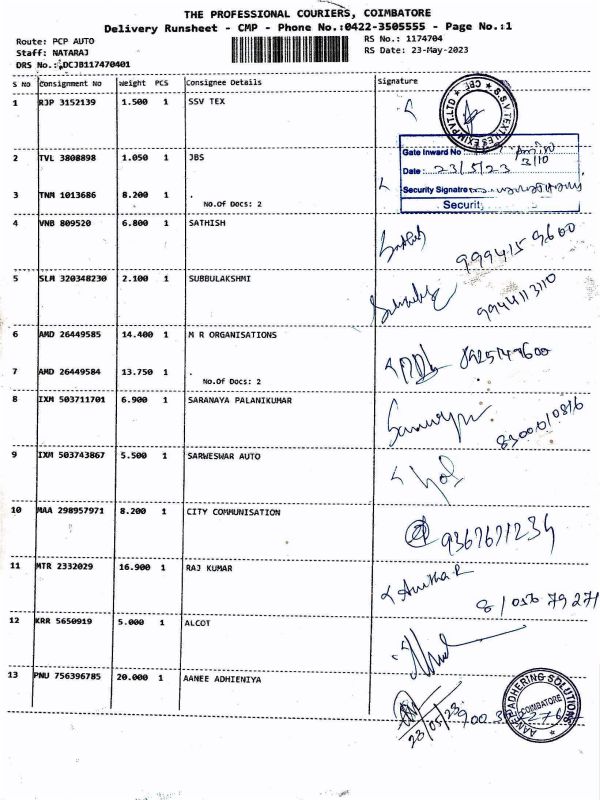 THE PROFESSIONAL COURIERS, COIMBATORE
Delivery Runsheet - CMP - Phone No.:0422-3505555 - Page No.:1
Route: PCP AUTO
RS No.: 1174704
Staff: NATARAJ
RS Date: 23-May-2023
DRS No.:DCJB117470401
S No Consignment No Weight PCS Consignee Details Signature
1 RJP 3152139 1.500 1 SSV TEX
S.S.V.TEXTILES EXIM PVT.LTD ★ CBE ★
Gate Inward No
3/10
2 TVL 3808898 1.050 1 JBS
Date : 23/5/23
3 TNM 1013686 8.200 1 .
Security Signatre
No.Of Docs: 2
Security
4 VNB 809520 6.800 1 SATHISH
Sathish
9994159600
5 SLM 320348230 2.100 1 SUBBULAKSHMI
9944113110
6 AMD 26449585 14.400 1 M R ORGANISATIONS
7 AMD 26449584 13.750 1 .
No.Of Docs: 2
8 IXM 503711701 6.900 1 SARANAYA PALANIKUMAR
8300010816
9 IXM 503743867 5.500 1 SARWESWAR AUTO
10 MAA 298957971 8.200 1 CITY COMMUNISATION
9367671234
11 MTR 2332029 16.900 1 RAJ KUMAR
Anitha R
81056 79271
12 KRR 5650919 5.000 1 ALCOT
13 PNU 756396785 20.000 1 AANEE ADHIENIYA
23/05/23
AANEE ADHERING SOLUTIONS ★ COIMBATORE